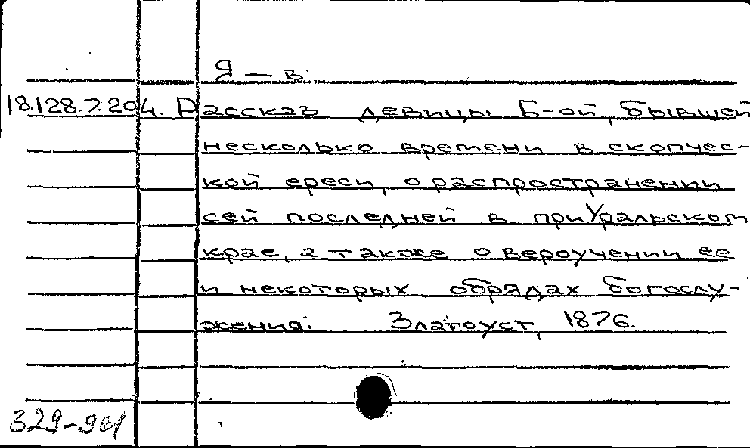 Я — в.
18.128.7.204. Рассказ девицы Б-ой, бывшей
несколько времени в скопчес-
кой ереси, о распространении
сей последней в приУральском
крае, а также о вероучении ее
и некоторых обрядах богослу-
жения. Златоуст, 1876.